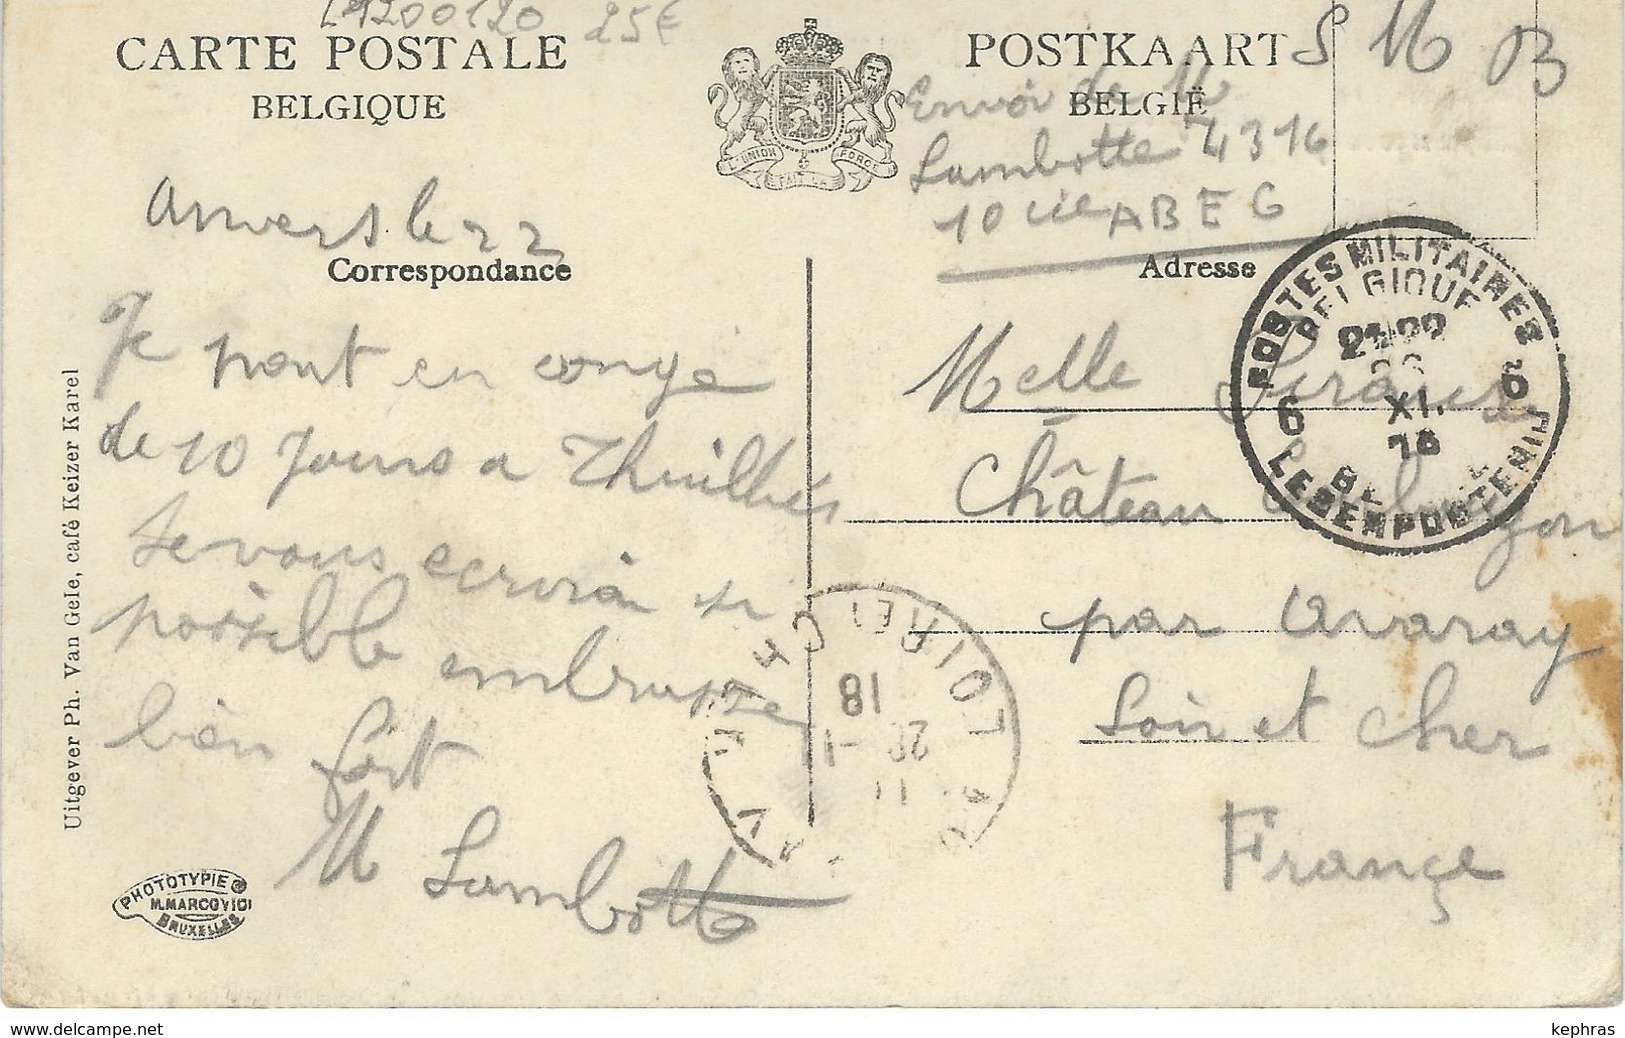 L1200120 25€
CARTE POSTALE
BELGIQUE
POSTKAART
BELGIË
S M B
L'UNION FAIT LA FORCE
Envoi de M
Lambotte Z 316
10 cie A B E G
Anvers le 22
Correspondance
Adresse
Je pent en congé
de 10 Jours a Thuillies
Je vous ecrirai si
possible embrasse
bien fort
M Lambotte
Melle
Château
par Avaray
Loir et Cher
France
POSTES MILITAIRES
BELGIQUE
21-22
XI.
6 6
LEGERPOSTERIJ
LOIR-ET-CHER
18
11
Uitgever Ph. Van Gele, café Keizer Karel
PHOTOTYPIE
M.MARCOVICI
BRUXELLES
www.delcampe.net
kephras